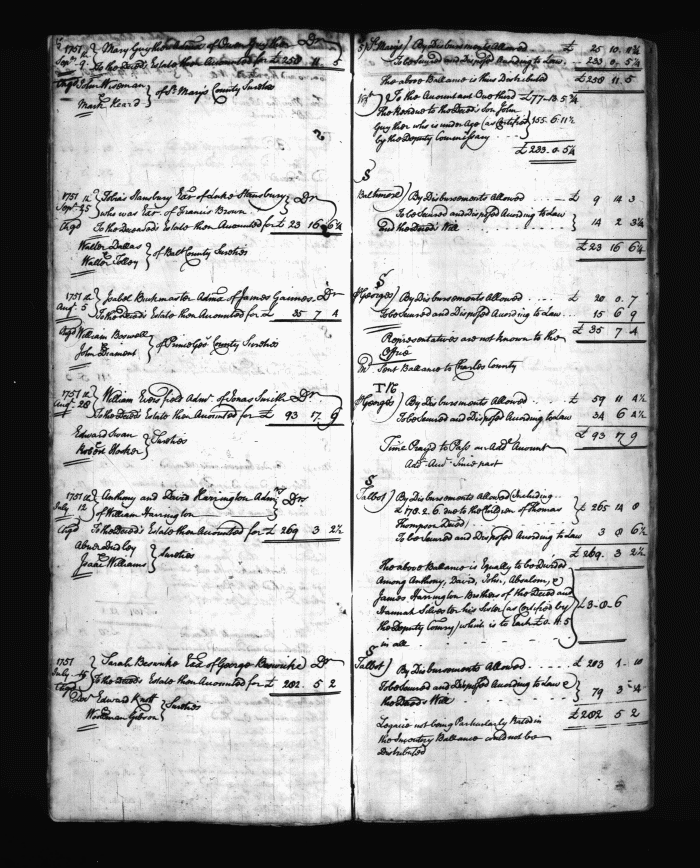 1751 Mary Guyther of Owen Guyther Dr
Sepr. 9. To the Deced's Estate then Accounted for £ 258 11 5
John Wiseman
Mark Heard
of St. Marys County Sureties
1751
Sepr. 25
Tobias Stansbury Exr. of Luke Stansbury
who was Exr. of Francis Brown
Dr
To the Deceased's Estate then Accounted for £ 23 16 6¼
Walter Dallas
Walter Tolley
of Balt County Sureties
1751 Isabel Buckmaster Admx. of James Dr
Augt. 5 To the Deced's Estate then Accounted for £ 35 7 4
William Boswell
John
of Prince Geo: County Sureties
1751 William Admr. of Jonas Smith Dr
Augt. 28 To the Deced's Estate then Accounted for £ 93 17 9
Edward Swan
Robert
Sureties
1751 Anthony and David Harrington Admrs. Dr
July 12 of William Harrington
To the Deced's Estate then Accounted for £ 269 3 2½
Abner Dudley
Isaac Williams
Sureties
1751 Sarah Beswicke Exx. of George Beswicke Dr
July To the Deced's Estate then Accounted for £ 282 5 2
Edward
Woolman Gibson
Sureties
St. Marys By Disbursements Allowed £ 25 10 11¾
To be Secured and Disposed According to Law 233 0 5¼
The above Ballance is thus Distributed £ 258 11 5
To the Accountant One third £77 13 5¾
The Residue to the Deced's Son John
Guyther who is under Age (as Certified
by the Deputy Commissary
155 6 11½
£ 233 0 5¼
Baltimore By Disbursements Allowed £ 9 14 3
To be Secured and Disposed According to Law
and the Deced's Will
14 2 3¼
£ 23 16 6¼
Pr Georges By Disbursements Allowed £ 20 0 7
To be Secured and Disposed According to Law 15 6 9
Representatives are not known to the £ 35 7 4
Office
Sent Ballance to Charles County
T/6
Pr Georges By Disbursements Allowed £ 59 11 4½
To be Secured and Disposed According to Law 34 6 4½
Time Prayed to Pass an Addl. Account £ 93 17 9
Since past
Talbot By Disbursements Allowed (Including
£ 178.2.6 due to the Children of Thomas
Thompson Deced)
£ 265 14 8
To be Secured and Disposed According to Law 3 8 6½
£ 269 3 2½
The above Ballance is Equally to be Divided
Among Anthony, David, John, Absolum, &
James Harrington Brothers of the Deced and
Hannah Silvester his Sister (as Certified by
the Deputy Comry) which is to Each £0.11.5
in all
£ 3-8-6
Talbot By Disbursements Allowed £ 203 1 10
To be Secured and Disposed According to Law &
the Deced's Will
79 3
£ 282 5 2
Legacies not being Particularly Rated in
the Inventory Ballance could not be
Distributed